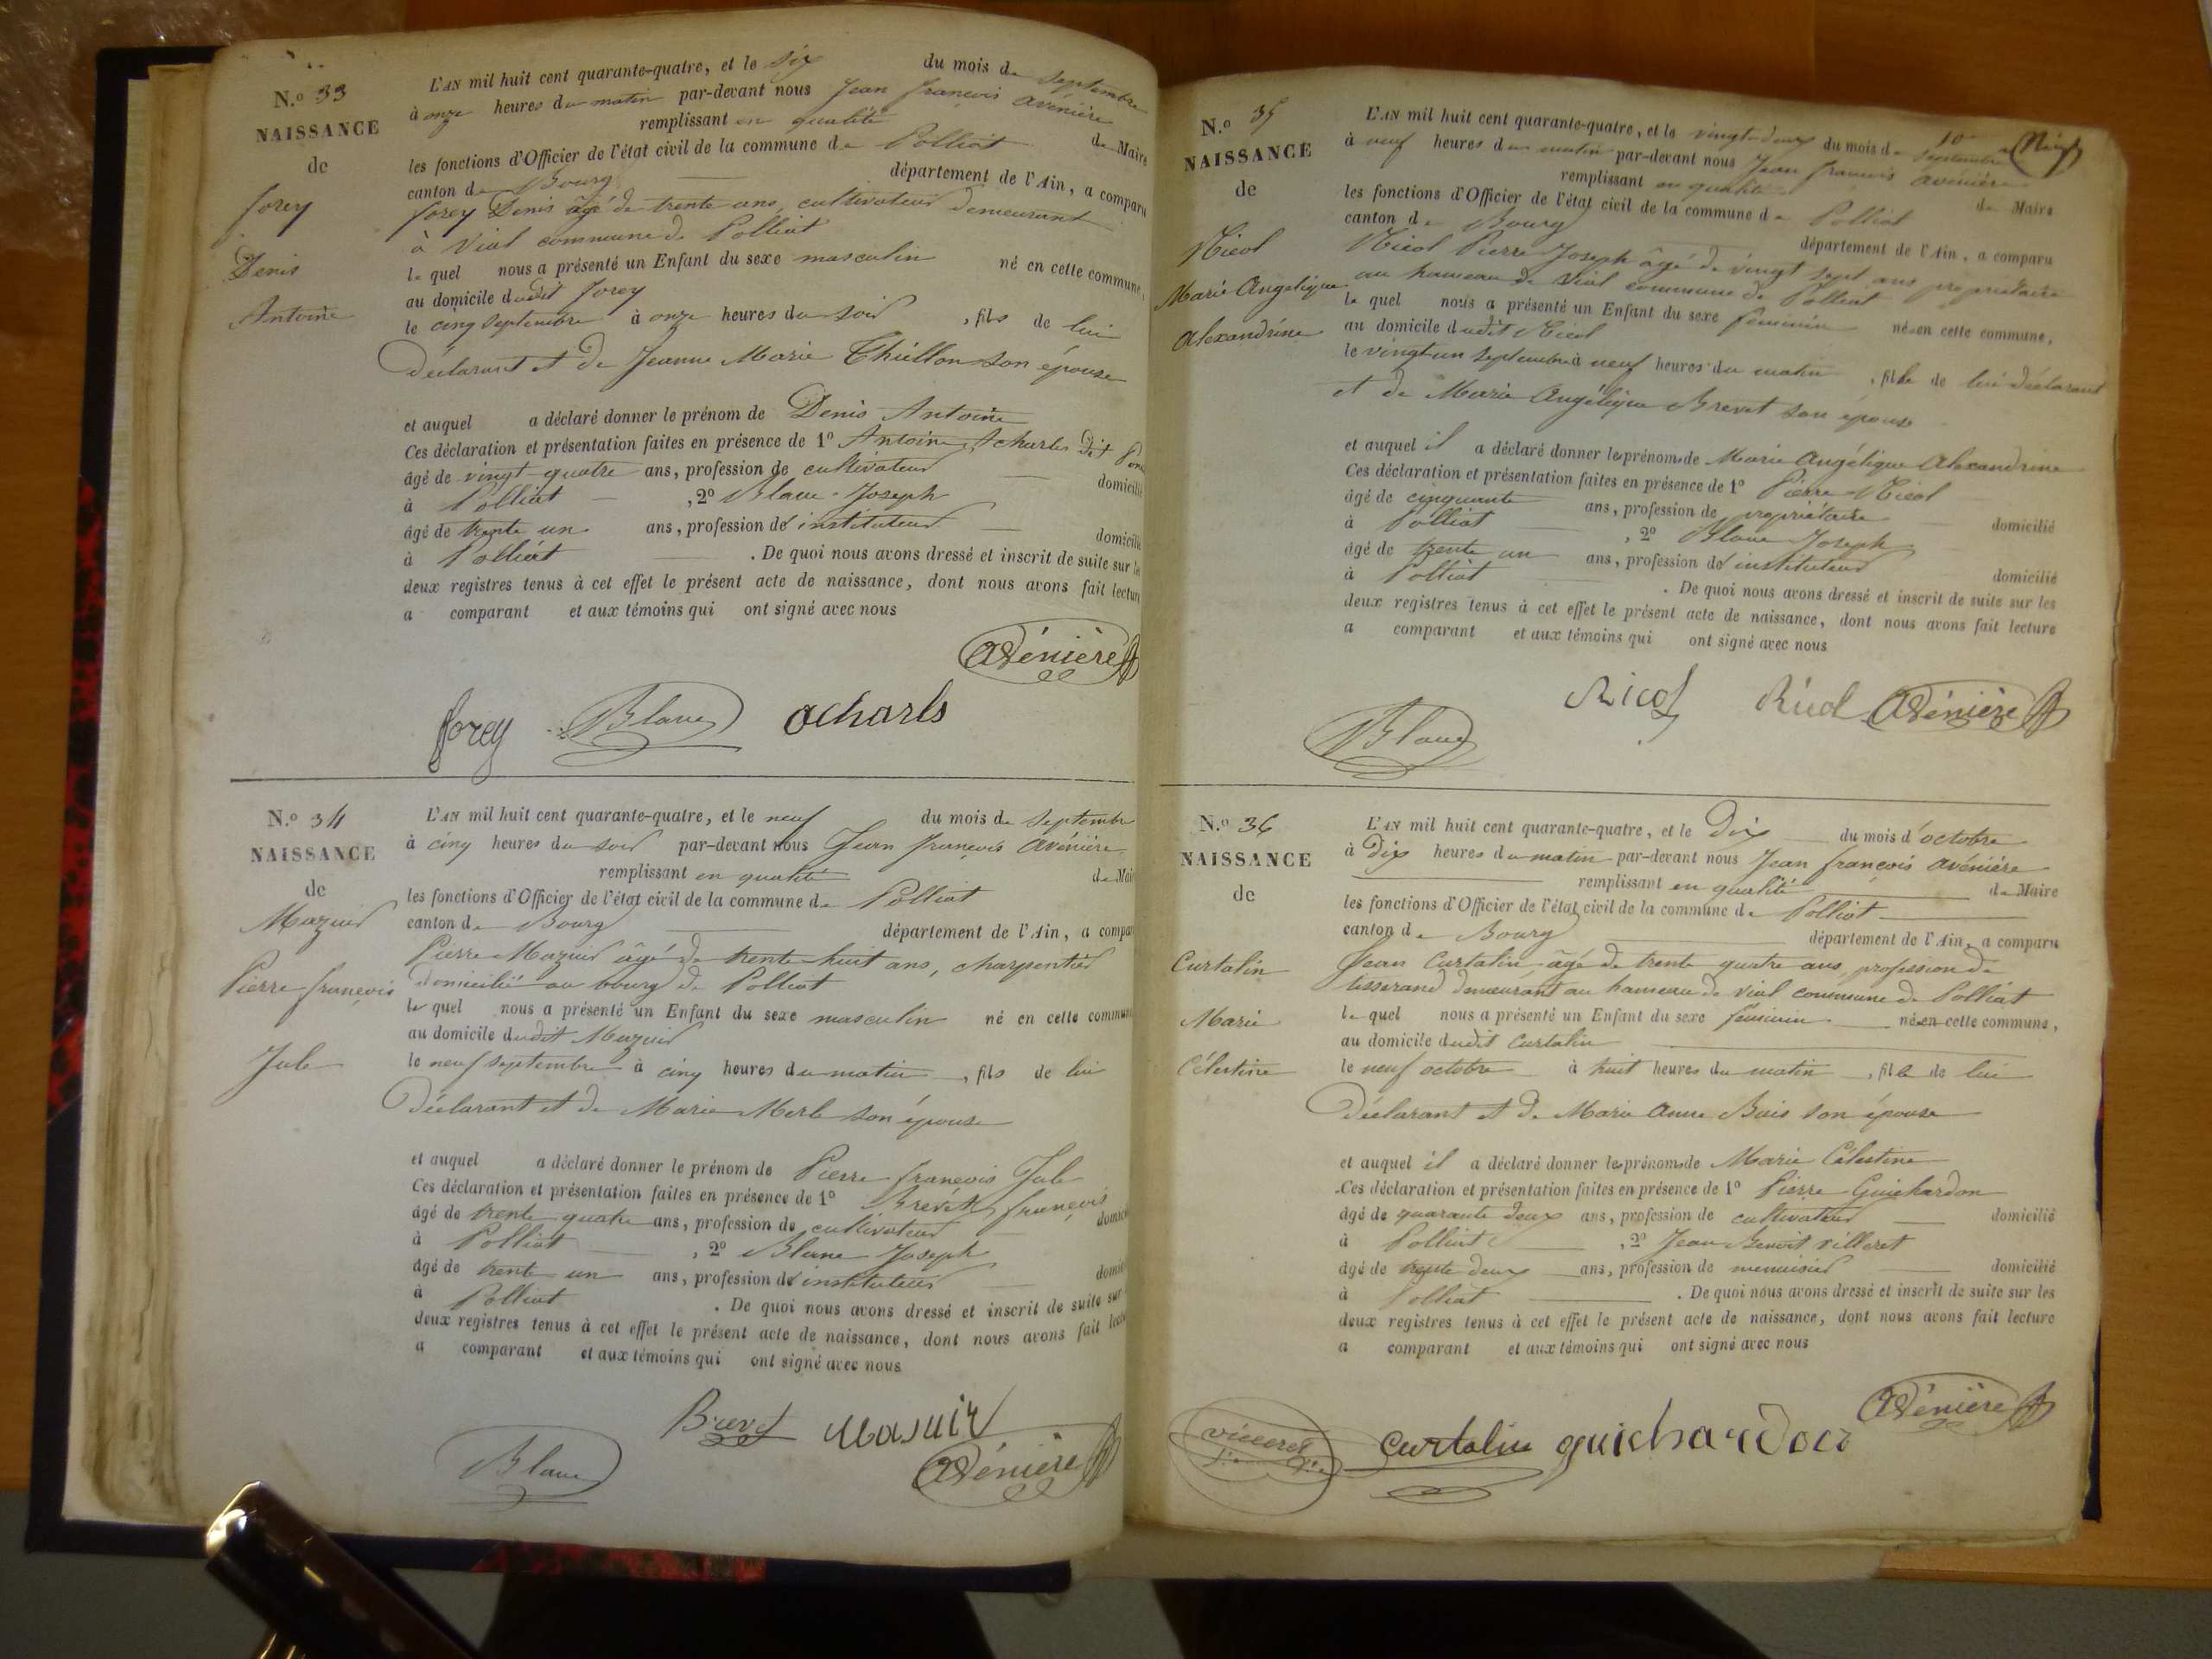 N.o 33
NAISSANCE
de
forey
Denis
Antoine
L'AN mil huit cent quarante-quatre, et le six du mois de septembre
à onze heures du matin par-devant nous Jean françois avénière
remplissant en qualité de Maire
les fonctions d'Officier de l'état civil de la commune de Polliat
canton de Bourg département de l'Ain, a comparu
forey Denis âgé de trente ans, cultivateur demeurant
à Vial commune de Polliat
le quel nous a présenté un Enfant du sexe masculin né en cette commune,
au domicile dudit forey
le cinq septembre à onze heures du soir, fils de lui
Déclarant et de Jeanne Marie Thiellon son épouse
et auquel a déclaré donner le prénom de Denis Antoine
Ces déclaration et présentation faites en présence de 1º Antoine Acharles dit
âgé de vingt-quatre ans, profession de cultivateur domicilié
à Polliat, 2º Blanc Joseph
âgé de trente un ans, profession d'instituteur domicilié
à Polliat. De quoi nous avons dressé et inscrit de suite sur les
deux registres tenus à cet effet le présent acte de naissance, dont nous avons fait lecture
a comparant et aux témoins qui ont signé avec nous
avénière
forey Blanc acharls
N.o 34
NAISSANCE
de
Mazuir
Pierre françois
Jule
L'AN mil huit cent quarante-quatre, et le neuf du mois de septembre
à cinq heures du soir par-devant nous Jean françois avénière
remplissant en qualité de Maire
les fonctions d'Officier de l'état civil de la commune de Polliat
canton de Bourg département de l'Ain, a comparu
Pierre Mazuir âgé de trente-huit ans, charpentier
domicilié au bourg de Polliat
le quel nous a présenté un Enfant du sexe masculin né en cette commune
au domicile dudit Mazuir
le neuf septembre à cinq heures du matin, fils de lui
Déclarant et de Marie Merle son épouse
et auquel a déclaré donner le prénom de Pierre françois Jule
Ces déclaration et présentation faites en présence de 1º Brevet françois
âgé de trente quatre ans, profession de cultivateur domicilié
à Polliat, 2º Blanc Joseph
âgé de trente un ans, profession d'instituteur domicilié
à Polliat. De quoi nous avons dressé et inscrit de suite sur
deux registres tenus à cet effet le présent acte de naissance, dont nous avons fait lecture
a comparant et aux témoins qui ont signé avec nous
Brevet Masuir
Blanc avénière
10
N.o 35
NAISSANCE
de
Nicol
Marie Angelique
alexandrine
L'AN mil huit cent quarante-quatre, et le vingt-deux du mois de septembre
à neuf heures du matin par-devant nous Jean françois avénière
remplissant en qualité de Maire
les fonctions d'Officier de l'état civil de la commune de Polliat
canton de Bourg département de l'Ain, a comparu
Nicol Pierre Joseph âgé de vingt sept ans propriétaire
au hameau de Vial commune de Polliat
le quel nous a présenté un Enfant du sexe féminin née en cette commune,
au domicile dudit Nicol
le vingt-un septembre à neuf heures du matin, fille de lui déclarant
et de Marie Angélique Brevet son épouse
et auquel il a déclaré donner les prénoms de Marie Angélique Alexandrine
Ces déclaration et présentation faites en présence de 1º Pierre Nicol
âgé de cinquante ans, profession de propriétaire domicilié
à Polliat, 2º Blanc Joseph
âgé de trente un ans, profession d'instituteur domicilié
à Polliat. De quoi nous avons dressé et inscrit de suite sur les
deux registres tenus à cet effet le présent acte de naissance, dont nous avons fait lecture
a comparant et aux témoins qui ont signé avec nous
Nicol Nicol avénière
Blanc
N.o 36
NAISSANCE
de
Curtalin
Marie
Célestine
L'AN mil huit cent quarante-quatre, et le Dix du mois d'octobre
à Dix heures du matin par-devant nous Jean françois avénière
remplissant en qualité de Maire
les fonctions d'Officier de l'état civil de la commune de Polliat
canton de Bourg département de l'Ain, a comparu
Jean Curtalin âgé de trente quatre ans, profession de
tisserand demeurant au hameau de Vial commune de Polliat
le quel nous a présenté un Enfant du sexe féminin née en cette commune,
au domicile dudit Curtalin
le neuf octobre à huit heures du matin, fille de lui
Déclarant et de Marie Anne Buis son épouse
et auquel il a déclaré donner les prénoms de Marie Célestine
Ces déclaration et présentation faites en présence de 1º Pierre Guichardon
âgé de quarante deux ans, profession de cultivateur domicilié
à Polliat, 2º Jean Benoit villeret
âgé de trente deux ans, profession de menuisier domicilié
à Polliat. De quoi nous avons dressé et inscrit de suite sur les
deux registres tenus à cet effet le présent acte de naissance, dont nous avons fait lecture
a comparant et aux témoins qui ont signé avec nous
avénière
Curtalin guichardon